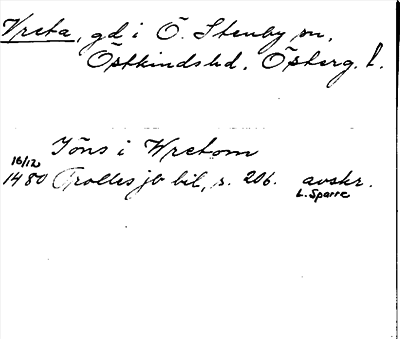 Vreta, gd i Ö. Stenby sn,
Östkinds hd. Österg. l.
Jöns i Wretom
16/12
1480 Trolles jb bil, s. 206. avskr.
L. Sparre